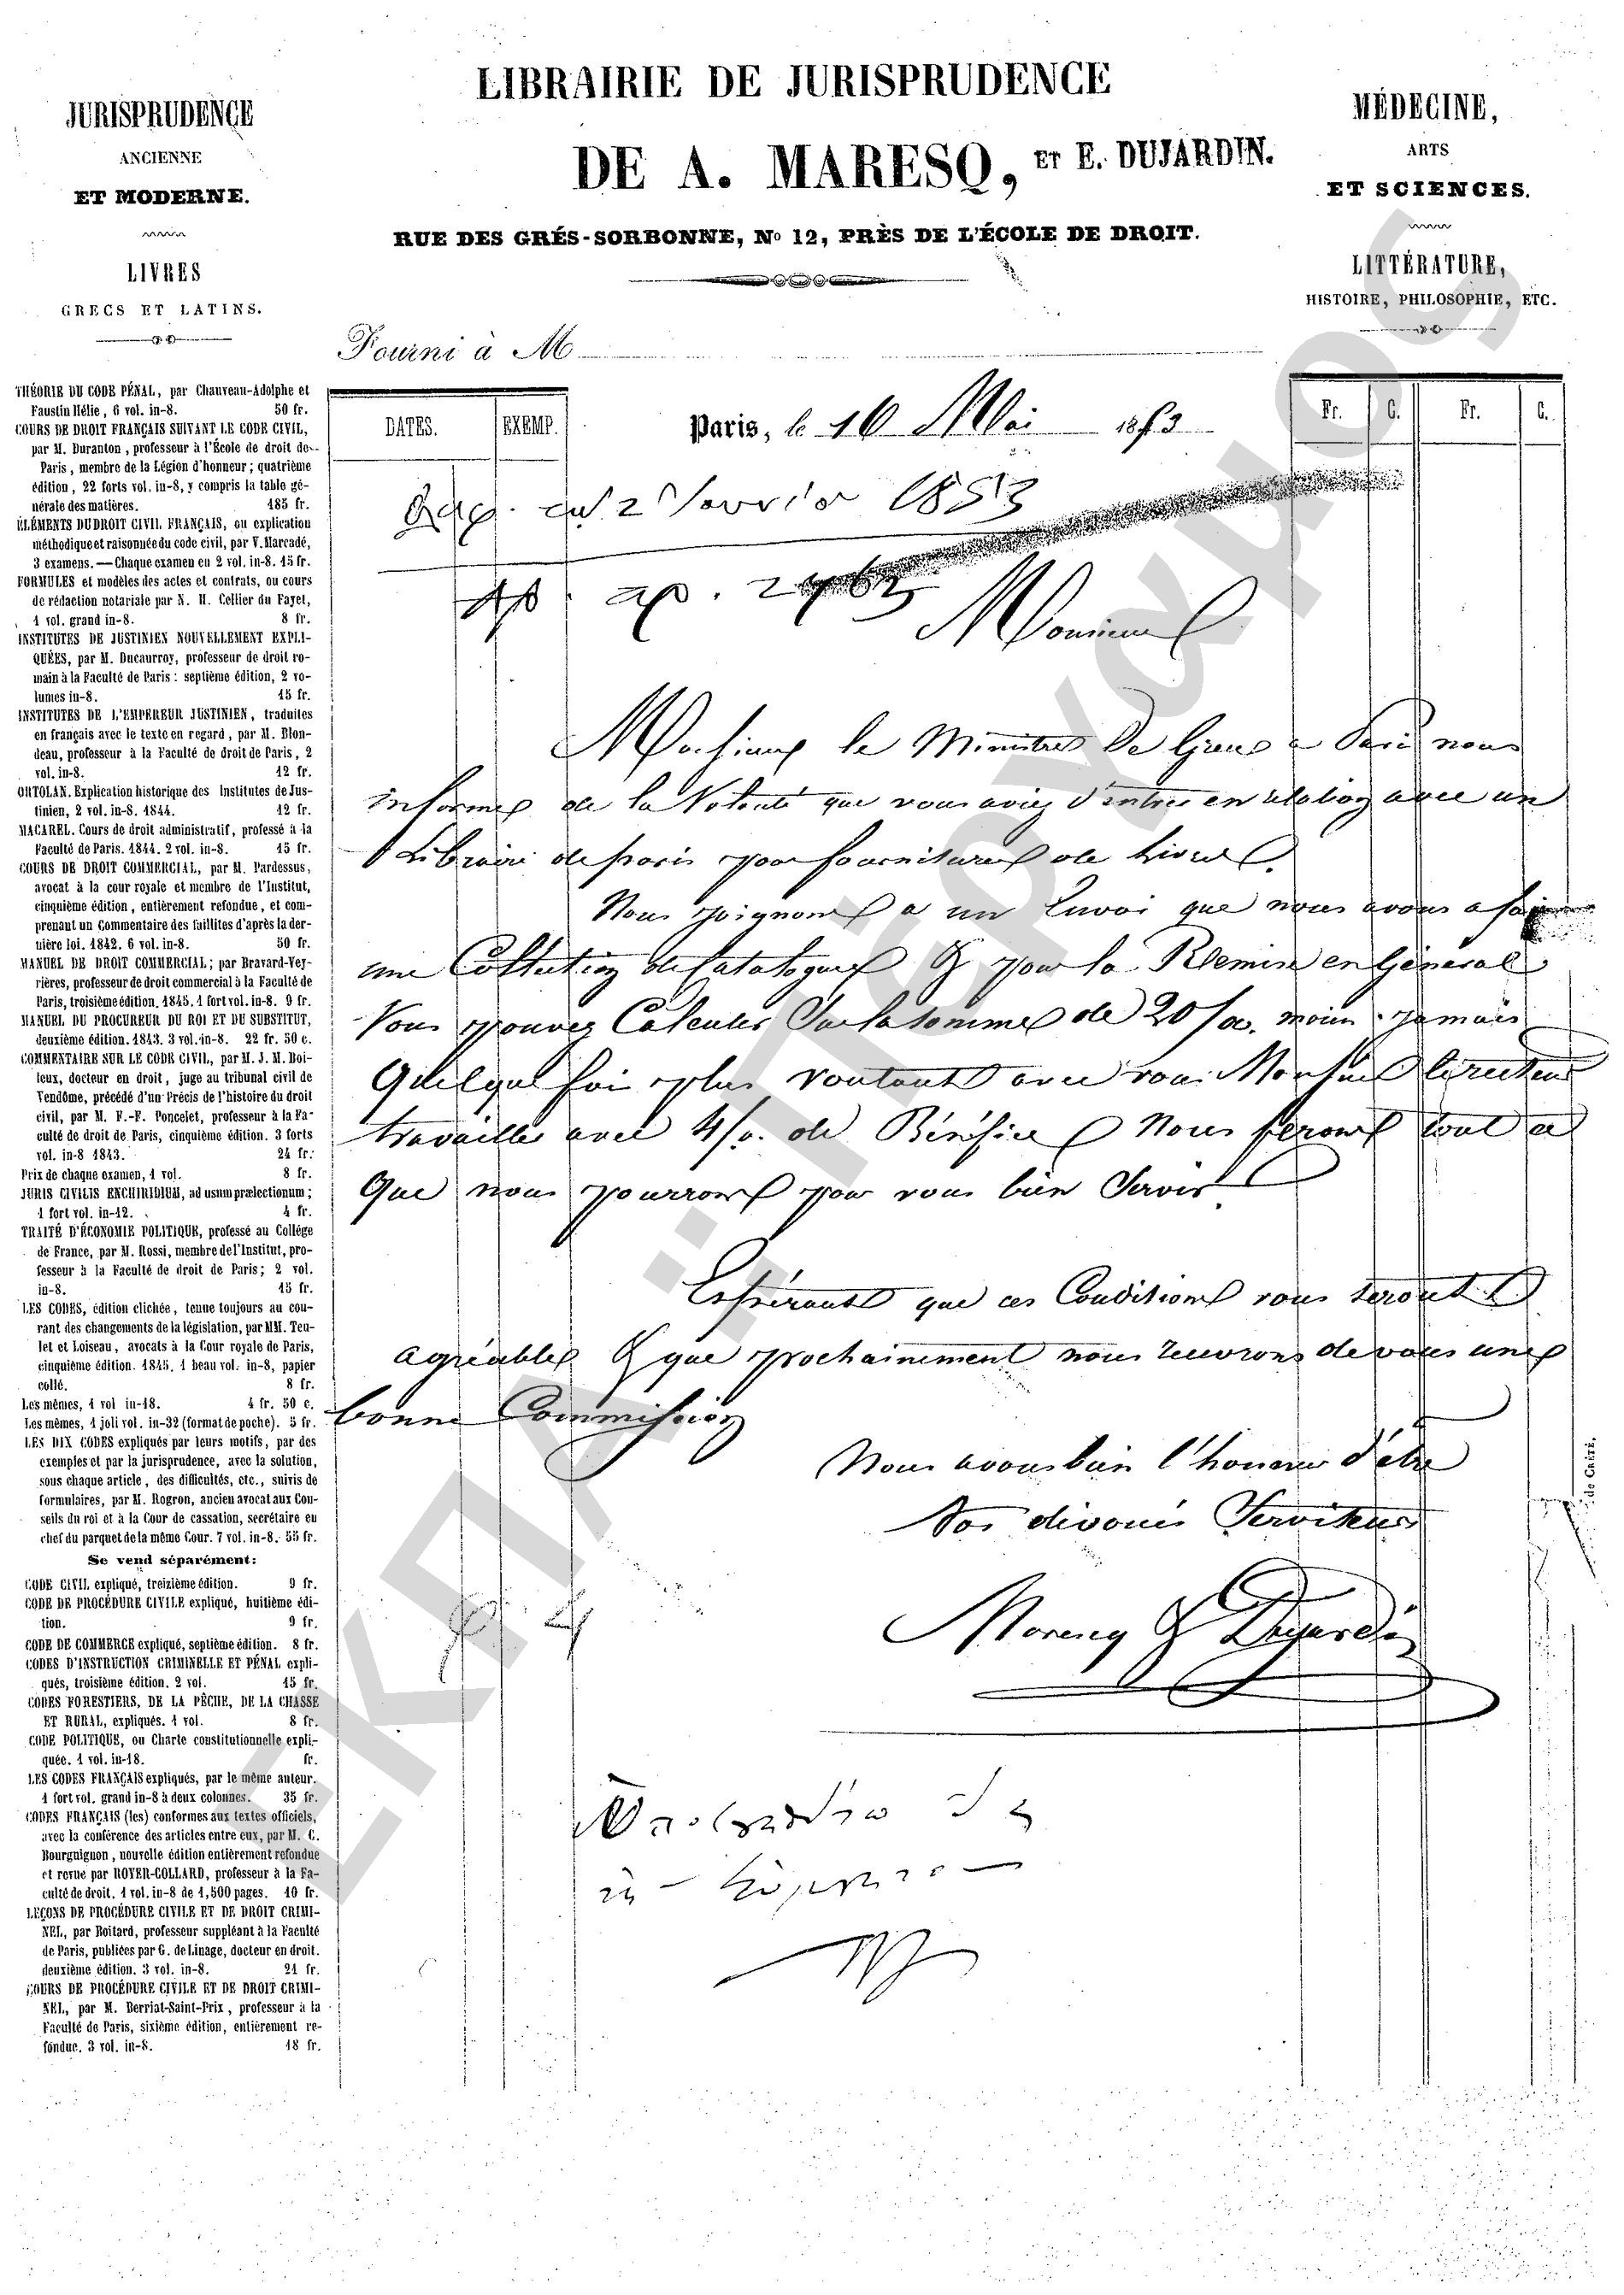 LIBRAIRIE DE JURISPRUDENCE
DE A. MARESQ, ET E. DUJARDIN.
RUE DES GRÉS-SORBONNE, No 12, PRÈS DE L'ÉCOLE DE DROIT.
JURISPRUDENCE
ANCIENNE
ET MODERNE.
LIVRES
GRECS ET LATINS.
MÉDECINE,
ARTS
ET SCIENCES.
LITTÉRATURE,
HISTOIRE, PHILOSOPHIE, ETC.
THÉORIE DU CODE PÉNAL, par Chauveau-Adolphe et
Faustin Hélie, 6 vol. in-8. 50 fr.
COURS DE DROIT FRANÇAIS SUIVANT LE CODE CIVIL,
par M. Duranton, professeur à l'École de droit de
Paris, membre de la Légion d'honneur; quatrième
édition, 22 forts vol. in-8, y compris la table gé-
nérale des matières. 185 fr.
ÉLÉMENTS DU DROIT CIVIL FRANÇAIS, ou explication
méthodique et raisonnée du code civil, par V. Marcadé,
3 examens. — Chaque examen en 2 vol. in-8. 15 fr.
FORMULES et modèles des actes et contrats, ou cours
de rédaction notariale par N. H. Cellier du Fayel,
1 vol. grand in-8. 8 fr.
INSTITUTES DE JUSTINIEN NOUVELLEMENT EXPLI-
QUÉES, par M. Ducaurroy, professeur de droit ro-
main à la Faculté de Paris: septième édition, 2 vo-
lumes in-8. 15 fr.
INSTITUTES DE L'EMPEREUR JUSTINIEN, traduites
en français avec le texte en regard, par M. Blon-
deau, professeur à la Faculté de droit de Paris, 2
vol. in-8. 12 fr.
ORTOLAN. Explication historique des Institutes de Jus-
tinien, 2 vol. in-8. 1844. 12 fr.
MACAREL. Cours de droit administratif, professé à la
Faculté de Paris. 1844. 2 vol. in-8. 15 fr.
COURS DE DROIT COMMERCIAL, par M. Pardessus,
avocat à la cour royale et membre de l'Institut,
cinquième édition, entièrement refondue, et com-
prenant un Commentaire des faillites d'après la der-
nière loi. 1842. 6 vol. in-8. 50 fr.
MANUEL DE DROIT COMMERCIAL; par Bravard-Vey-
rières, professeur de droit commercial à la Faculté de
Paris, troisième édition. 1845. 1 fort vol. in-8. 9 fr.
MANUEL DU PROCUREUR DU ROI ET DU SUBSTITUT,
deuxième édition. 1843. 3 vol. in-8. 22 fr. 50 c.
COMMENTAIRE SUR LE CODE CIVIL, par M. J. M. Boi-
leux, docteur en droit, juge au tribunal civil de
Vendôme, précédé d'un Précis de l'histoire du droit
civil, par M. F.-F. Poncelet, professeur à la Fa-
culté de droit de Paris, cinquième édition. 3 forts
vol. in-8 1843. 24 fr.
Prix de chaque examen, 1 vol. 8 fr.
JURIS CIVILIS ENCHIRIDIUM, ad usum prælectionum;
1 fort vol. in-12. 4 fr.
TRAITÉ D'ÉCONOMIE POLITIQUE, professé au Collége
de France, par M. Rossi, membre de l'Institut, pro-
fesseur à la Faculté de droit de Paris; 2 vol.
in-8. 15 fr.
LES CODES, édition clichée, tenue toujours au cou-
rant des changements de la législation, par MM. Teu-
let et Loiseau, avocats à la Cour royale de Paris,
cinquième édition. 1845, 1 beau vol. in-8, papier
collé. 8 fr.
Les mêmes, 1 vol in-18. 4 fr. 50 c.
Les mêmes, 1 joli vol. in-32 (format de poche). 5 fr.
LES DIX CODES expliqués par leurs motifs, par des
exemples et par la jurisprudence, avec la solution,
sous chaque article, des difficultés, etc., suivis de
formulaires, par M. Rogron, ancien avocat aux Con-
seils du roi et à la Cour de cassation, secrétaire en
chef du parquet de la même Cour. 7 vol. in-8. 55 fr.
Se vend séparément:
CODE CIVIL expliqué, treizième édition. 9 fr.
CODE DE PROCÉDURE CIVILE expliqué, huitième édi-
tion. 9 fr.
CODE DE COMMERCE expliqué, septième édition. 8 fr.
CODES D'INSTRUCTION CRIMINELLE ET PÉNAL expli-
qués, troisième édition. 2 vol. 15 fr.
CODES FORESTIERS, DE LA PÊCHE, DE LA CHASSE
ET RURAL, expliqués. 1 vol. 8 fr.
CODE POLITIQUE, ou Charte constitutionnelle expli-
quée. 1 vol. in-18. fr.
LES CODES FRANÇAIS expliqués, par le même auteur.
1 fort vol. grand in-8 à deux colonnes. 35 fr.
CODES FRANÇAIS (les) conformes aux textes officiels,
avec la conférence des articles entre eux, par M. C.
Bourguignon, nouvelle édition entièrement refondue
et revue par ROYER-COLLARD, professeur à la Fa-
culté de droit. 1 vol. in-8 de 1,500 pages. 10 fr.
LEÇONS DE PROCÉDURE CIVILE ET DE DROIT CRIMI-
NEL, par Boitard, professeur suppléant à la Faculté
de Paris, publiées par G. de Linage, docteur en droit.
deuxième édition. 3 vol. in-8. 21 fr.
COURS DE PROCÉDURE CIVILE ET DE DROIT CRIMI-
NEL, par M. Berriat-Saint-Prix, professeur à la
Faculté de Paris, sixième édition, entièrement re-
fondue. 3 vol. in-8. 18 fr.
Fourni à M
DATES. EXEMP. Fr. C. Fr. C.
Paris, le 16 Mai 1853
1853
Monsieur
le Ministre De Grece a Paris nous
informe de la Volonté que vous aviez d'entrer en relation avec un
Libraire de paris pour fournitures de Livres.
Nous joignons a un Envoi que nous avons a faire
une Collection de Catalogues & pour la Remise en Général
Vous pouvez Calculer Sur la somme de 20/00. moins jamais
Quelque fois plus voulant avec vous Monsieur Directeur
travailler avec 4/0. de Bénéfice Nous ferons tout ce
Que nous pourrons pour vous bien Servir.
Espérant que ces Conditions vous seront
agréables & que prochainement nous recevrons de vous une
bonne Commission
Nous avons bien l'honneur d'être
Vos dévoués Serviteurs
Maresq & Dujardin